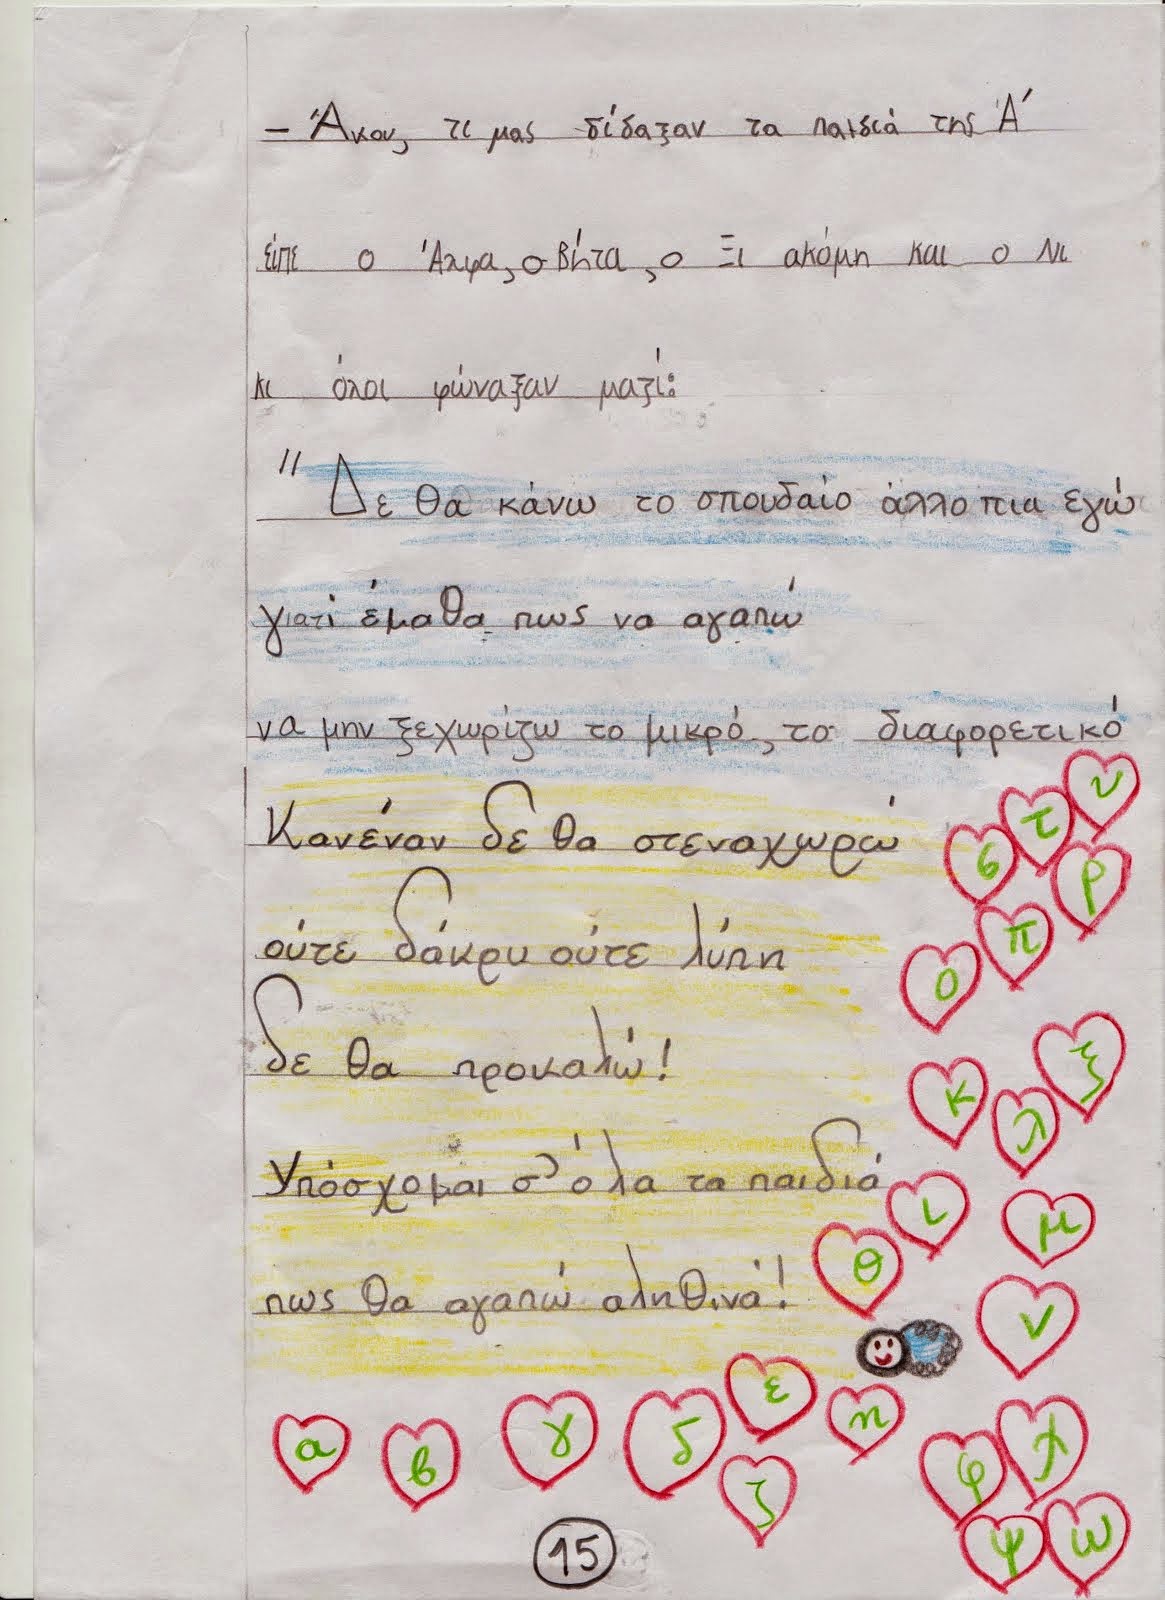 – Άκου, τι μας δίδαξαν τα παιδιά της Α΄
είπε ο Άλφα, ο Βήτα, ο Ξι ακόμη και ο Νι
κι όλοι φώναξαν μαζί:
"Δε θα κάνω το σπουδαίο άλλο πια εγώ
γιατί έμαθα πως να αγαπώ
να μην ξεχωρίζω το μικρό, το διαφορετικό
Κανέναν δε θα στεναχωρώ
ούτε δάκρυ ούτε λύπη
δε θα προκαλώ!
Υπόσχομαι σ' όλα τα παιδιά
πως θα αγαπώ αληθινά!
σ τ υ
ο π ρ
κ λ ξ
θ ι μ
ν
α β γ δ ε η
ζ
φ χ
ψ ω
15